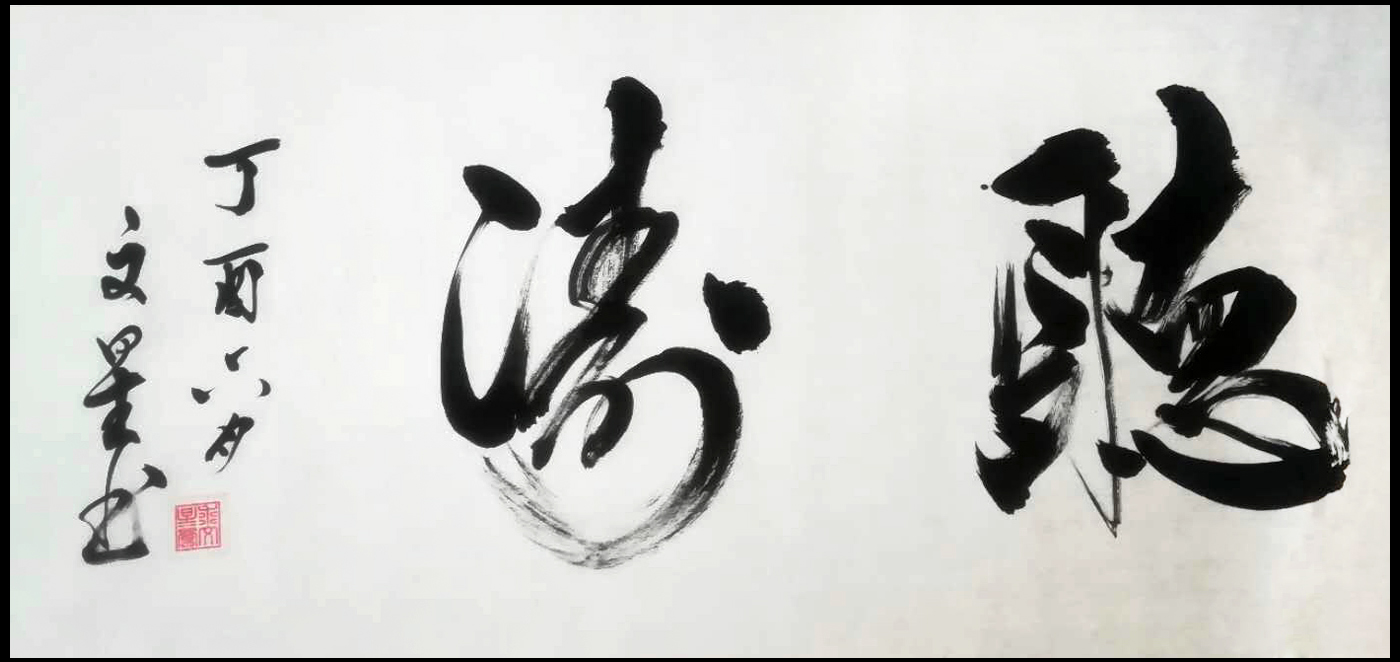 聽濤
丁酉六月
文星书